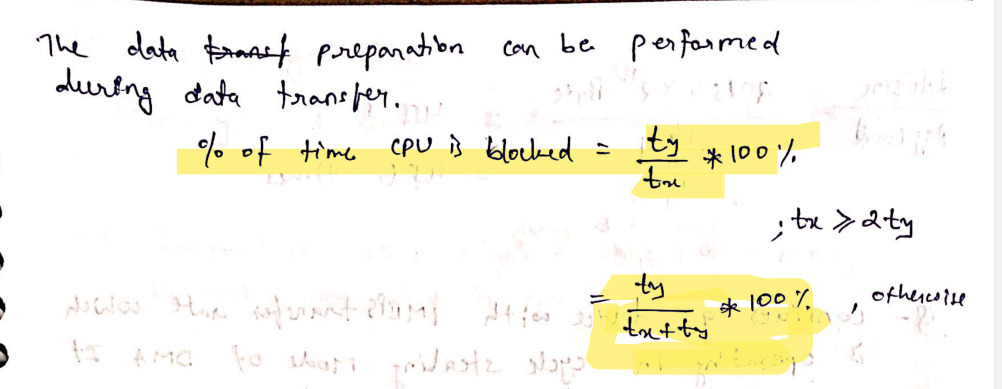 The data transf preparation can be performed
during data transfer.
% of time CPU is blocked = ty/tx * 100 %
; tx ≥ 2ty
= ty/(tx + ty) * 100 % , otherwise